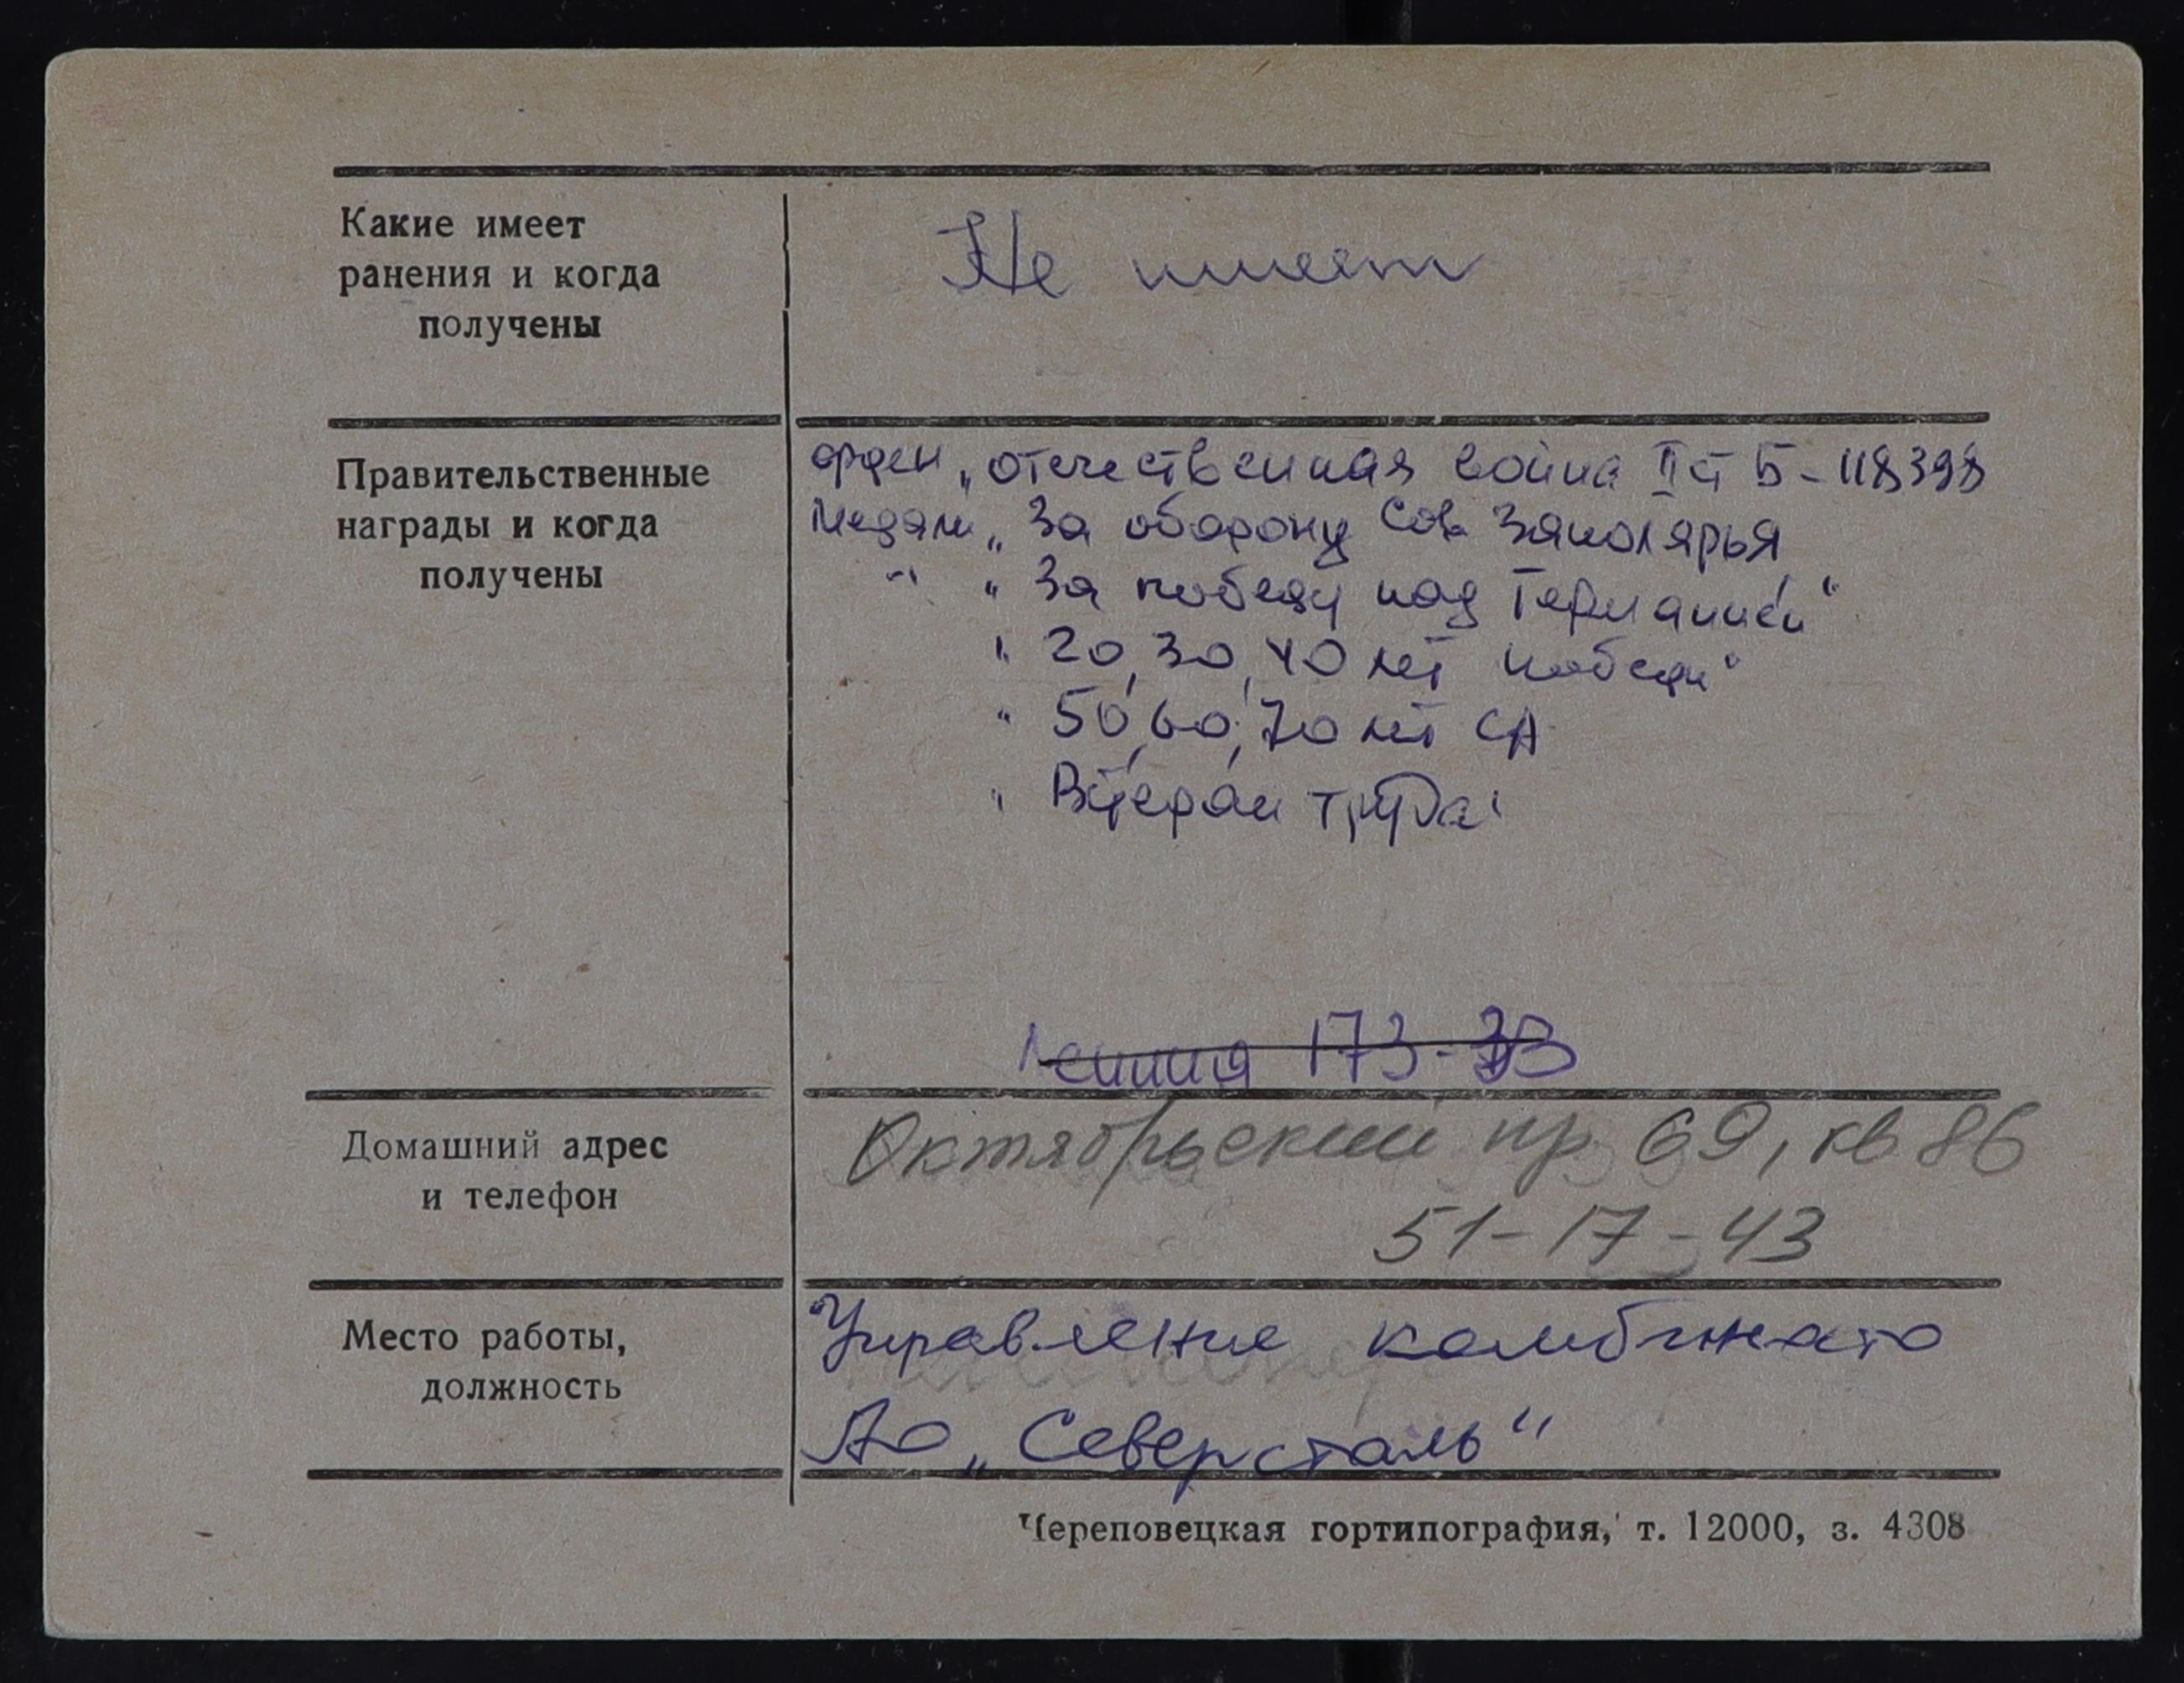 Какие имеет
ранения и когда
получены
Не имеет
Правительственные
награды и когда
получены
орден „Отечественная война II ст Б-118398
Медали „За оборону Сов Заполярья
-"- „За победу над Германией"
" 20, 30, 40 лет победы"
" 50, 60, 70 лет СА
" Ветеран труда"
Ленина 173-33
Домашний адрес
и телефон
Октябрьский пр 69, кв 86
51-17-43
Место работы,
должность
Управление комбината
АО „Северсталь"
Череповецкая гортипография, т. 12000, з. 4308